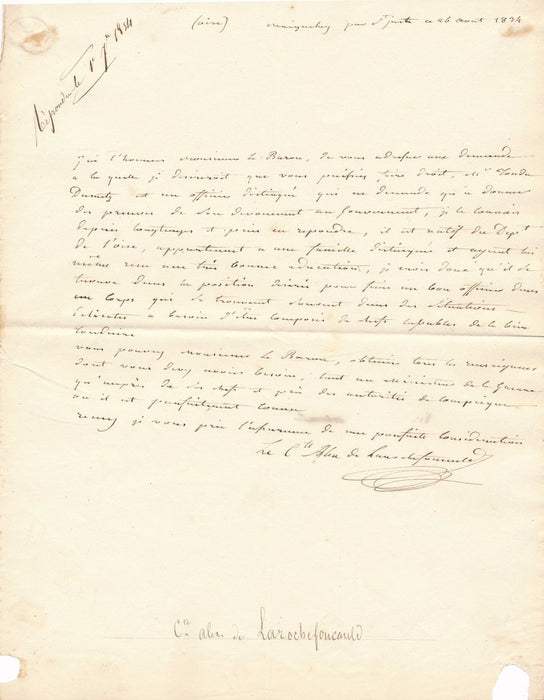 (oise) maignelay par St just ce 26 aout 1834
Répondu le 1er 7bre 1834
j'ai l'honneur monsieur le Baron, de vous adresser une demande
à la quelle je désirerois que vous puissiez faire droit, Mr
Dumetz est un officier distingué qui ne demande qu'à donner
des preuves de son devouement au Gouvernement, je le connois
depuis longtemps et puis en repondre, il est natif du Dept
de l'oise, appartenant a une famille distinguée et ayant lui
même recu une très bonne education, je crois donc qu'il se
trouve dans la position désirée pour faire un bon officier dans
un corps qui se trouvant souvent dans des situations
a besoin d'être composé de chefs capables de le bien
conduire
vous pouvez monsieur le Baron, obtenir tous les renseignemens
dont vous devez avoir besoin, tant au Ministère de la Guerre
qu'auprès de ses chefs et près des autorités de Compiegne
où il est parfaitement connu
recevez je vous prie l'assurance de ma parfaite consideration
Le Cte Alex de Larochefoucauld
Cte alex. de Larochefoucauld